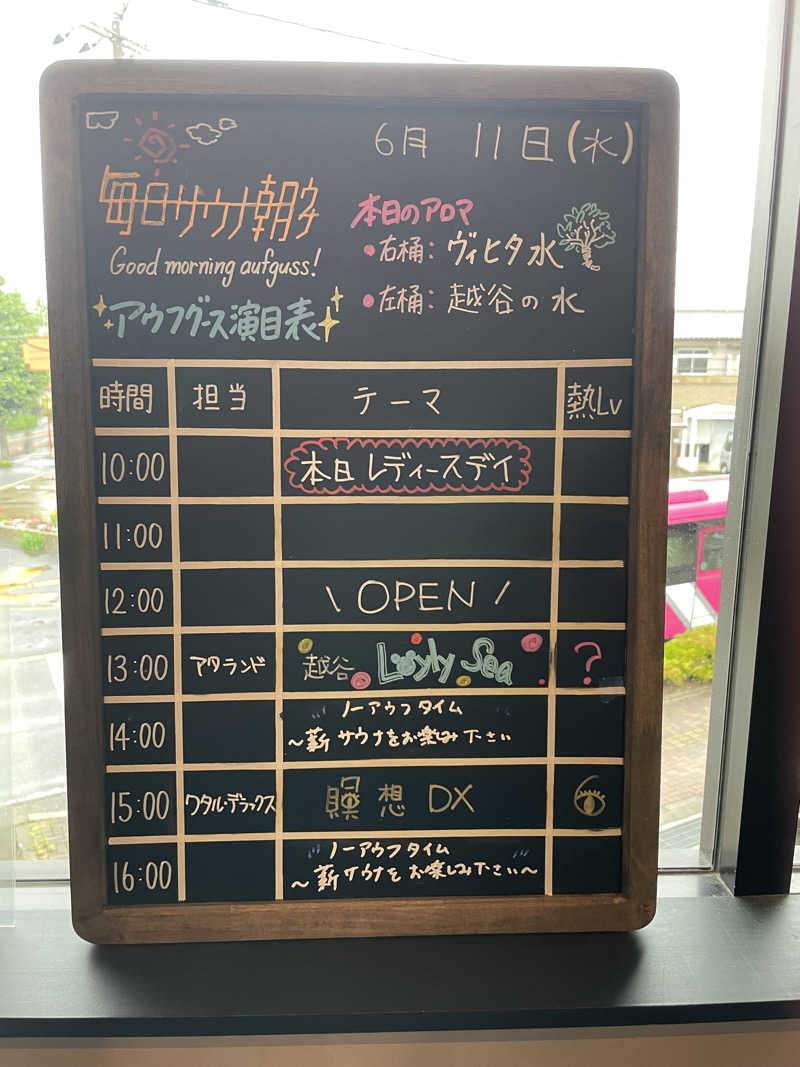 6月 11日(水)
毎日サウナ朝ウ
Good morning aufguss!
アウフグース演目表
本日のアロマ
•右桶: ヴィヒタ水
•左桶: 越谷の水
時間 担当 テーマ 熱Lv
10:00 本日レディースデイ
11:00
12:00 \ OPEN /
13:00 アタランド 越谷 Löyly Sea ?
14:00 ノーアウフタイム
~薪サウナをお楽み下さい
15:00 ワタル・デラックス 瞑想 DX
16:00 ノーアウフタイム
~薪サウナをお楽しみ下さい~